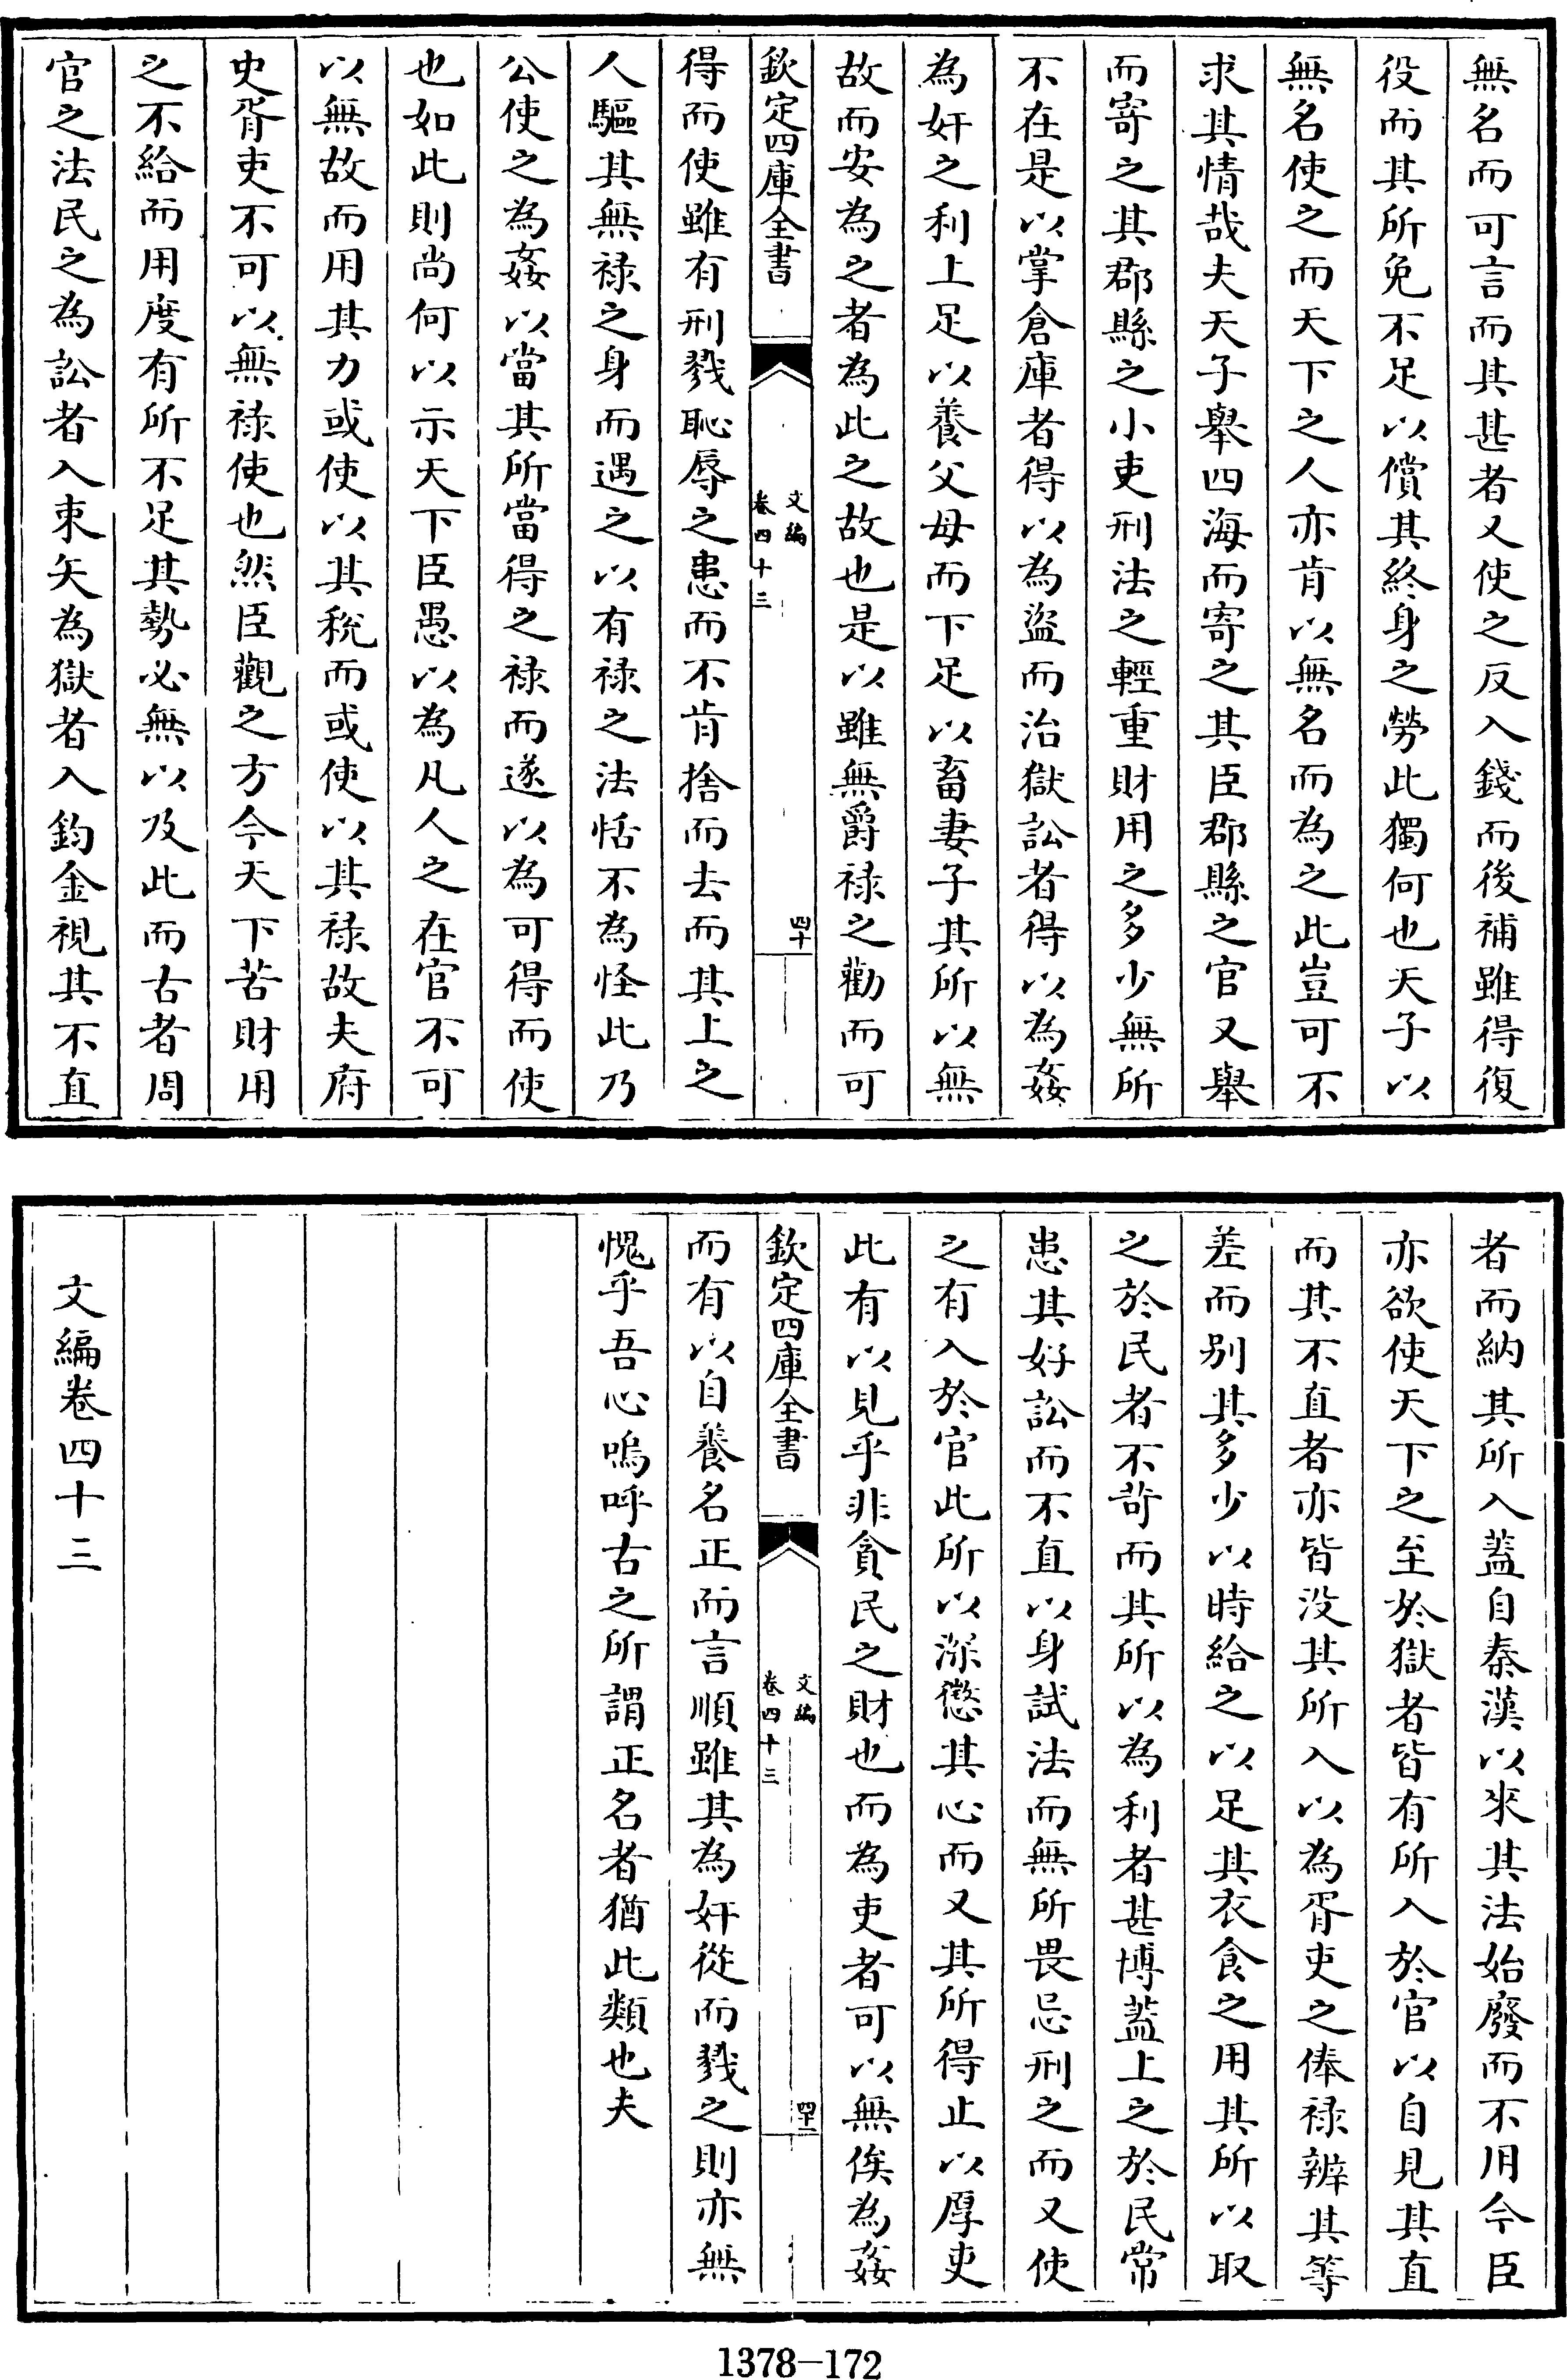 無名而可言而其甚者又使之反入錢而後補雖得復
役而其所免不足以償其終身之勞此獨何也天子以
無名使之而天下之人亦肯以無名而為之此豈可不
求其情哉夫天子舉四海而寄之其臣郡縣之官又舉
而寄之其郡縣之小吏刑法之輕重財用之多少無所
不在是以掌倉庫者得以為盜而治獄訟者得以為姦
為奸之利上足以養父母而下足以畜妻子其所以無
故而安為之者為此之故也是以雖無爵祿之勸而可
欽定四庫全書
文編
卷四十三
四十
得而使雖有刑戮恥辱之患而不肯捨而去而其上之
人驅其無祿之身而遇之以有祿之法恬不為怪此乃
公使之為姦以當其所當得之祿而遂以為可得而使
也如此則尚何以示天下臣愚以為凡人之在官不可
以無故而用其力或使以其稅而或使以其祿故夫府
史胥吏不可以無祿使也然臣觀之方今天下苦財用
之不給而用度有所不足其勢必無以及此而古者周
官之法民之為訟者入束矢為獄者入鈞金視其不直
者而納其所入蓋自秦漢以來其法始廢而不用今臣
亦欲使天下之至於獄者皆有所入於官以自見其直
而其不直者亦皆没其所入以為胥吏之俸祿辨其等
差而别其多少以時給之以足其衣食之用其所以取
之於民者不苛而其所以為利者甚博蓋上之於民常
患其好訟而不直以身試法而無所畏忌刑之而又使
之有入於官此所以深懲其心而又其所得止以厚吏
此有以見乎非貪民之財也而為吏者可以無俟為姦
欽定四庫全書
文編
卷四十三
四十一
而有以自養名正而言順雖其為奸從而戮之則亦無
愧乎吾心嗚呼古之所謂正名者猶此類也夫
文編卷四十三
1378—172